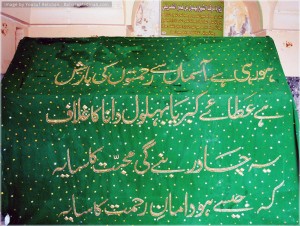 ہو رہی ہے آسماں سے رحمتوں کی بارش
ہے عطائے کبریا بہلول دانا کا غلاف
یہ چادر بنے گی محبّت کا سایہ
کہ جیسے ہو دامانِ رحمت کا سایہ